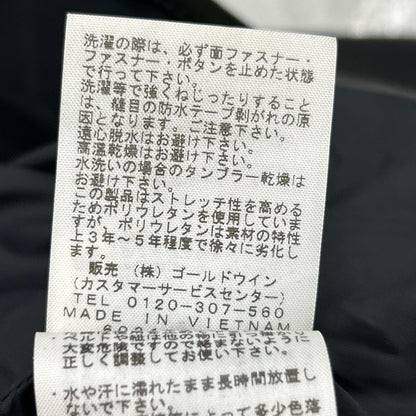 洗濯の際は、必ず面ファスナー・
ファスナー・ボタンを止めた状態
で行って下さい。
洗濯等で強くねじったりすること
は、縫目の防水テープ剥がれの原
因となります。ご注意下さい。
遠心脱水はお避け下さい。
高温乾燥はお避け下さい。
水洗いの場合のタンブラー乾燥は
お避け下さい。
この製品はストレッチ性を高める
ためポリウレタンを使用していま
すが、ポリウレタンは素材の特性
上3年〜5年程度で徐々に劣化し
ます。
販売 (株) ゴールドウイン
(カスタマーサービスセンター)
TEL 0120-307-560
MADE IN VIETNAM
大変危険ですので絡まないように
正しく調整してお使い下さい。
・水や汗に濡れたまま長時間放置し
ないで下さい。
によって多少色落